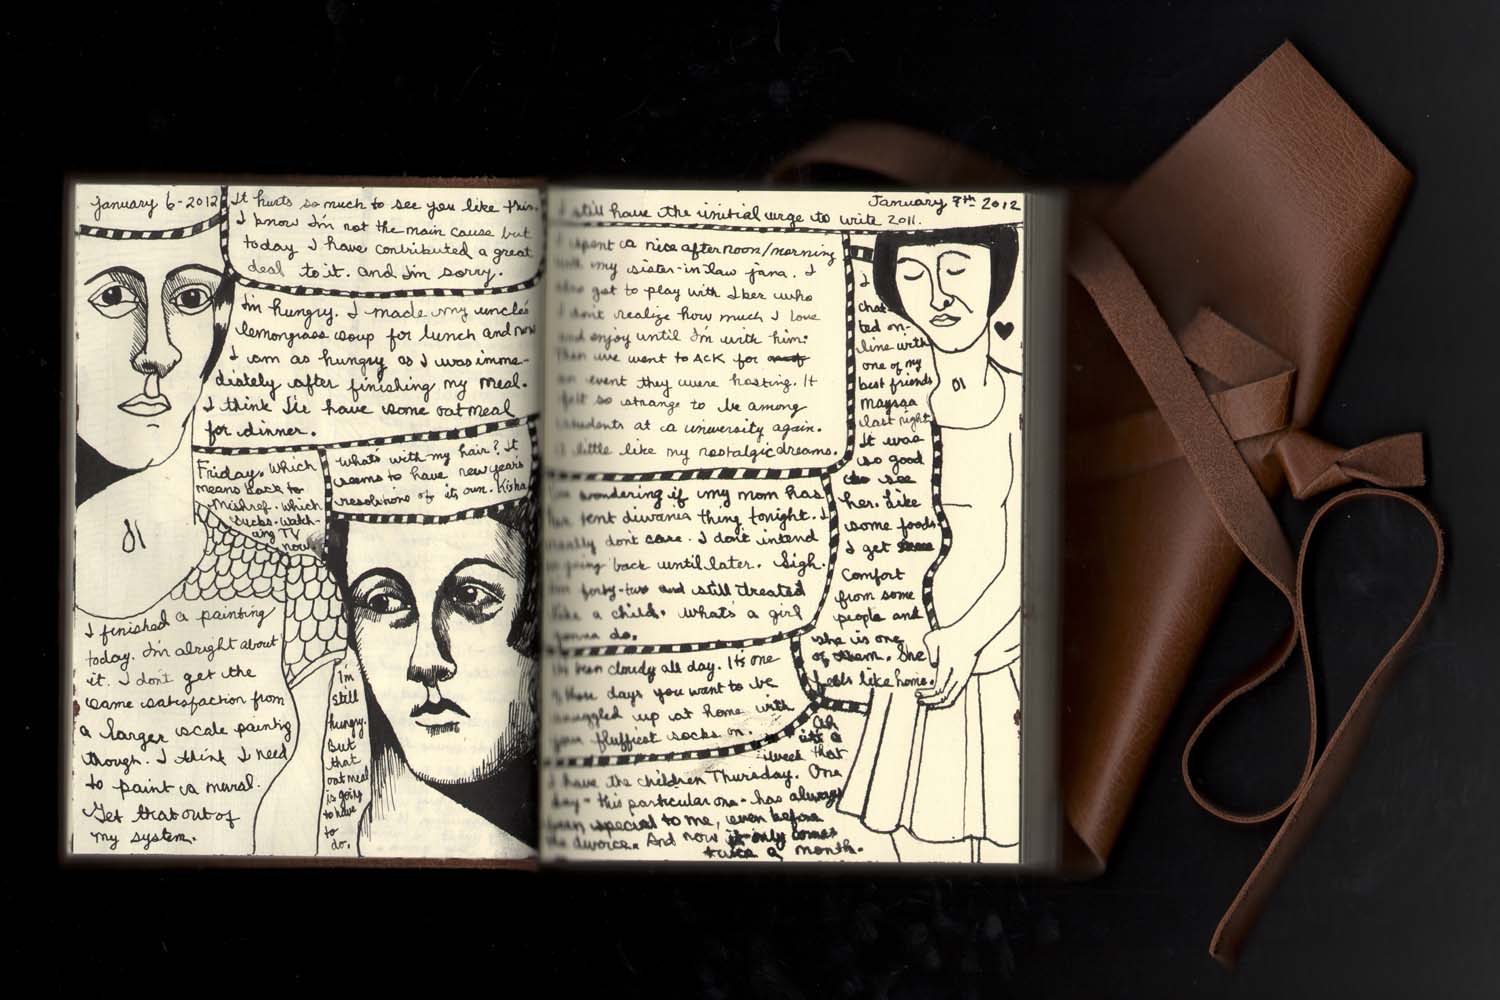 January 6-2012
It hurts so much to see you like this.
I know I'm not the main cause but
today I have contributed a great
deal to it. And I'm sorry.
I'm hungry. I made my uncle's
lemongrass soup for lunch and now
I am as hungry as I was imme-
diately after finishing my meal.
I think I'll have some oatmeal
for dinner.
Friday. Which
means back to
Mishref. Which
sucks. Watch-
ing TV
now
What's with my hair? It
seems to have new year's
resolutions of its own. Kisha
I finished a painting
today. I'm alright about
it. I don't get the
same satisfaction from
a larger scale painting
though. I think I need
to paint a mural.
Get that out of
my system.
I'm
still
hungry.
But
that
oatmeal
is going
to have
to
do.
01
January 7th 2012
I still have the initial urge to write 2011.
I spent a nice afternoon/morning
with my sister-in-law Jana. I
also got to play with Iker who
I don't realize how much I love
and enjoy until I'm with him.
Then we went to ACK for
an event they were hosting. It
felt so strange to be among
students at a university again.
A little like my nostalgic dreams.
I'm wondering if my mom has
her rent diwania thing tonight. I
really dont care. I don't intend
on going back until later. Sigh.
I'm forty-two and still treated
like a child. What's a girl
gonna do.
It's been cloudy all day. It's one
of those days you want to be
snuggled up at home with
your fluffiest socks on.
I
chat-
ted on-
line with
one of my
best friends
Maysaa
last night
It was
so good
to see
her. Like
some foods
I get
comfort
from some
people and
she is one
of them. She
feels like home.
01
Oh
it's a
week that
I have the children Thursday. One
day - this particular one - has always
been special to me, even before
the divorce. And now it only comes
twice a month.